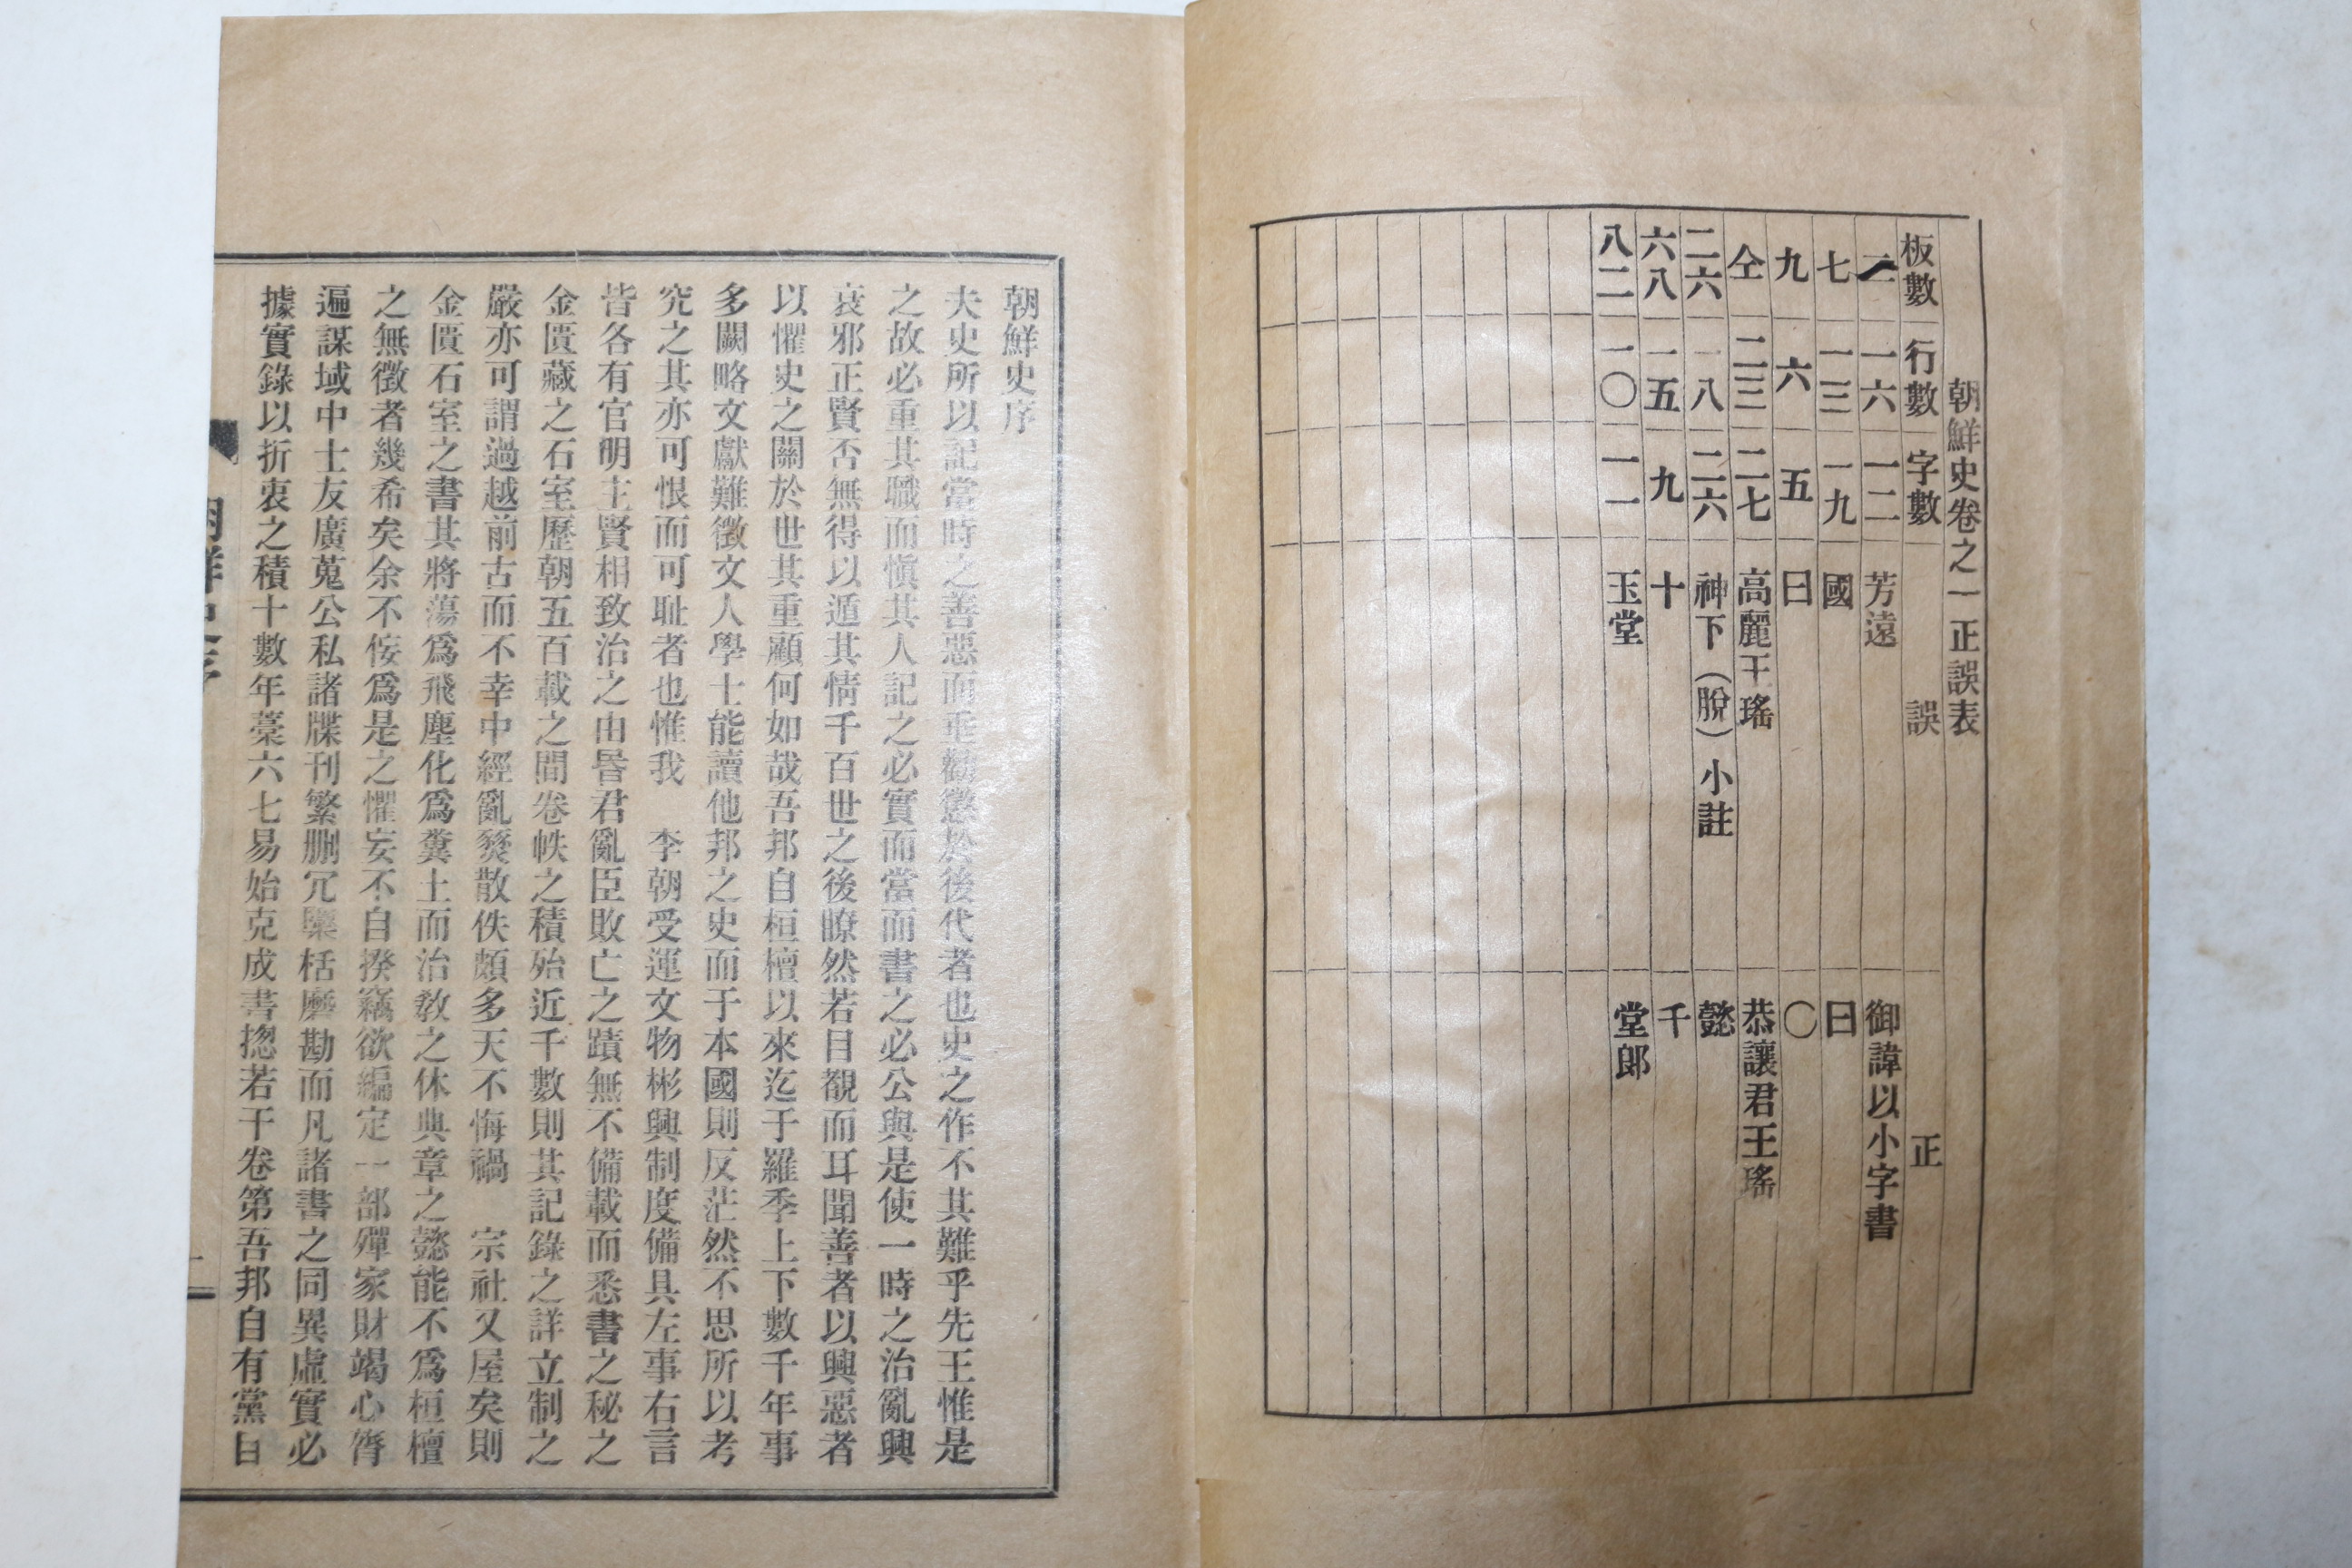 朝鮮史卷之一正誤表
板數 行數 字數 誤 正
二 一六 一二 芳遠 御諱以小字書
七 一三 一九 國 曰
九 六 五 曰 〇
仝 二三 二七 高麗王瑤 恭讓君王瑤
二六 一八 二六 神下（脫）小註 懿
六八 一五 九 十 千
八二 一〇 一一 玉堂 堂郞
朝鮮史序
夫史所以記當時之善惡而垂勸懲於後代者也史之作不其難乎先王惟是
之故必重其職而愼其人記之必實而當而書之必公與是使一時之治亂興
哀邪正賢否無得以遁其情千百世之後瞭然若目覩而耳聞善者以興惡者
以懼史之關於世其重顧何如哉吾邦自桓檀以來迄于羅季上下數千年事
多闕略文獻難徵文人學士能讀他邦之史而于本國則反茫然不思所以考
究之其亦可恨而可耻者也惟我 李朝受運文物彬興制度備具左事右言
皆各有官明主賢相致治之由昬君亂臣敗亡之蹟無不備載而悉書之秘之
金匱藏之石室歷朝五百載之間卷帙之積殆近千數則其記錄之詳立制之
嚴亦可謂過越前古而不幸中經亂燹散佚頗多天不悔禍 宗社又屋矣則
金匱石室之書其將蕩爲飛塵化爲糞土而治敎之休典章之懿能不爲桓檀
之無徵者幾希矣余不佞爲是之懼妄不自揆竊欲編定一部殫家財竭心膂
遍謀域中士友廣蒐公私諸牒刊繁刪冗櫽栝磨勘而凡諸書之同異虛實必
據實錄以折衷之積十數年藁六七易始克成書揔若干卷第吾邦自有黨目